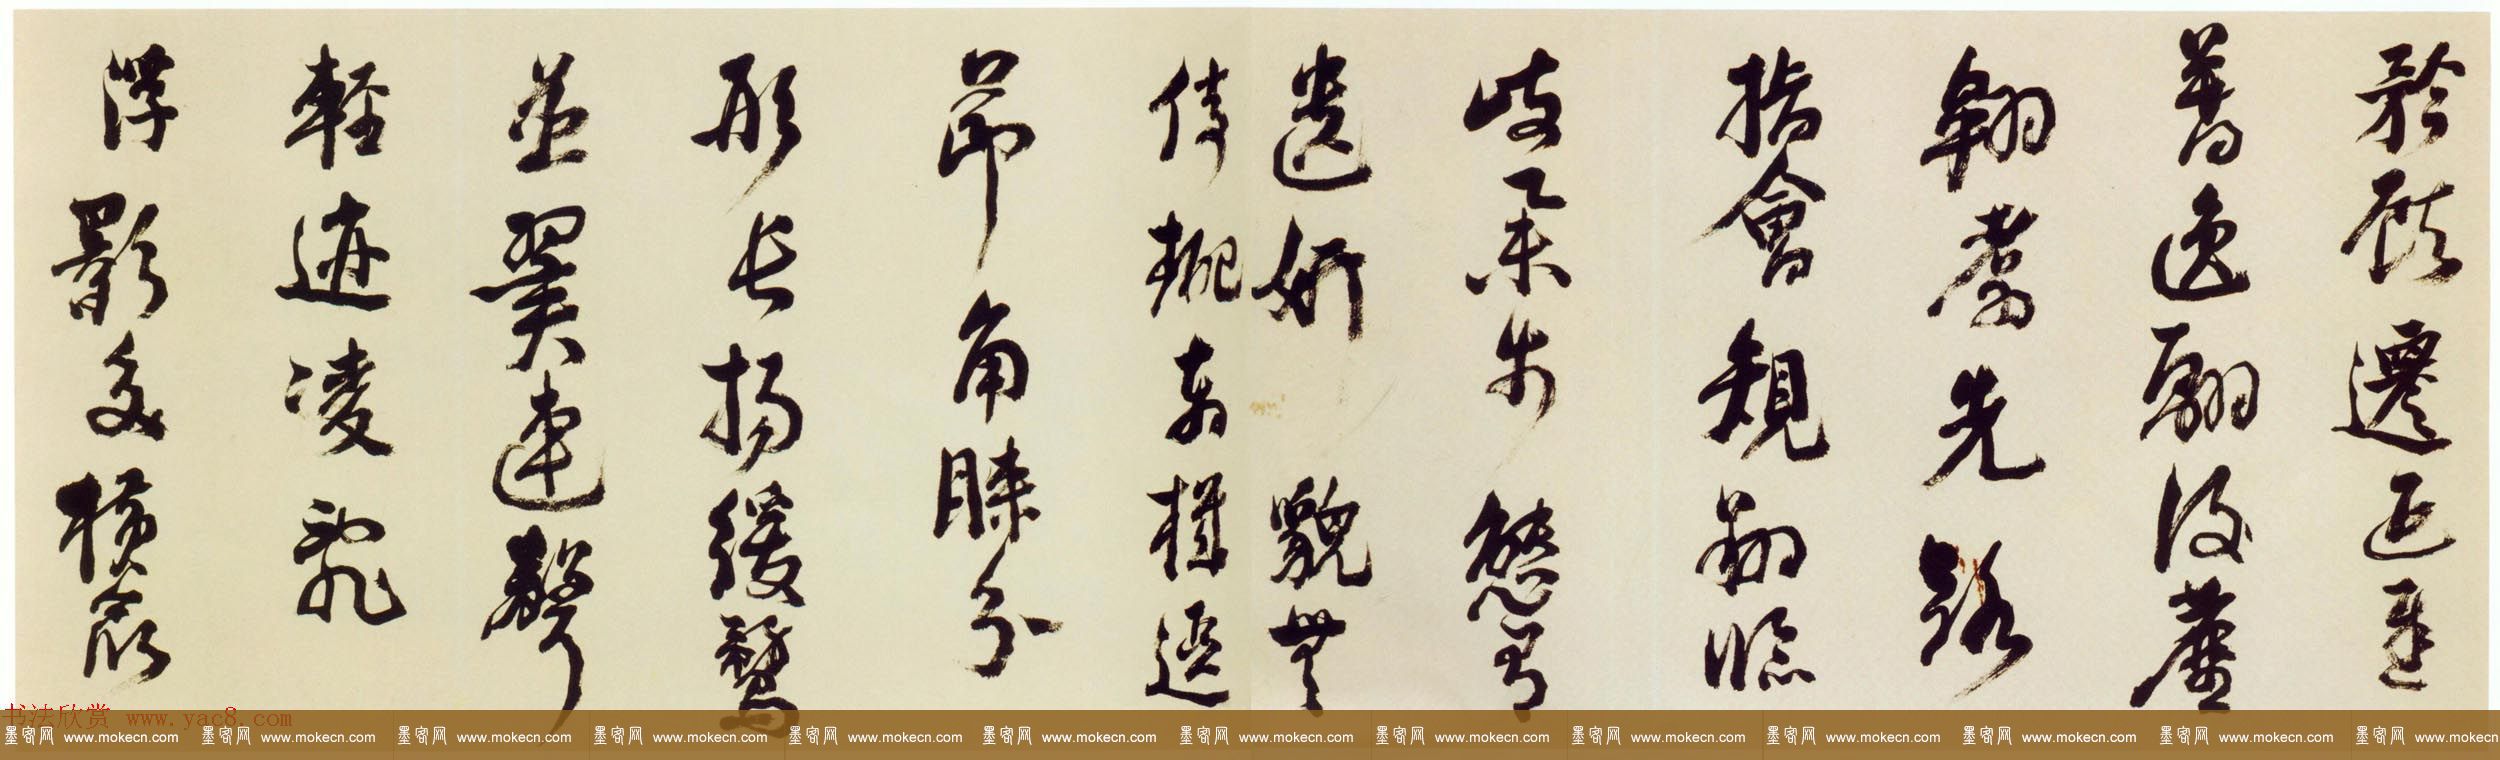 矜顧遷延遲
暮逸翮後塵
翱翥先路
指會規翔臨
岐矩步態有
遺妍貌無
停趣奔機逗
節角睞分
形長揚緩騖
並翼連聲
輕迹凌亂
浮影交橫衆
书法欣赏 www.yac8.com
墨客网 www.mokecn.com 墨客网 www.mokecn.com 墨客网 www.mokecn.com 墨客网 www.mokecn.com 墨客网 www.mokecn.com 墨客网 www.mokecn.com 墨客网 www.mokecn.com 墨客网 www.mokecn.com 墨客网 www.mokecn.com 墨客网 www.mokecn.com 墨客网 www.mokecn.com 墨客网 www.mokecn.com 墨客网 www.mokecn.com